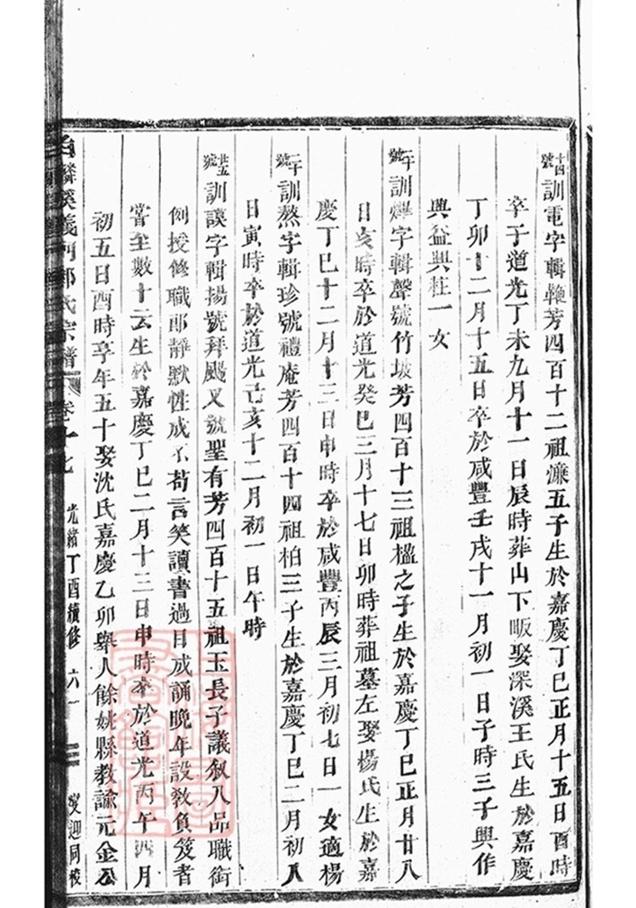 十四號訓電字輯艳芳四百十二祖濂五子生於嘉慶丁巳正月十五日酉時
卒于道光丁未九月十一日辰時葬山下畈娶深溪王氏生於嘉慶
丁卯十二月十五日卒於咸豐壬戌十一月初一日子時三子興作
興益興柱一女
二千號訓燁字輯聲號竹坡芳四百十三祖楹之子生於嘉慶丁巳正月廿八
日亥時卒於道光癸巳三月十七日卯時葬祖墓左娶楊氏生於嘉
慶丁巳十二月十三日申時卒於咸豐丙辰三月初七日一女適楊
號訓熬字輯珍號禮庵芳四百十四祖柏三子生於嘉慶丁巳二月初八
日寅時卒於道光己亥十二月初一日午時
號訓讓字輯揚號拜颺又號聖有芳四百十五祖玉長子議叙八品職銜
例授修職郎靜默性成不苟言笑讀書過目成誦晚年設敎負笈者
嘗至數十云生於嘉慶丁巳二月十三日申時卒於道光丙午四月
初五日酉時享年五十娶沈氏嘉慶乙卯舉人餘姚縣教諭元金公
麟溪義門鄭氏宗譜 卷十九 光緒丁酉續修 六一 爻迎同校